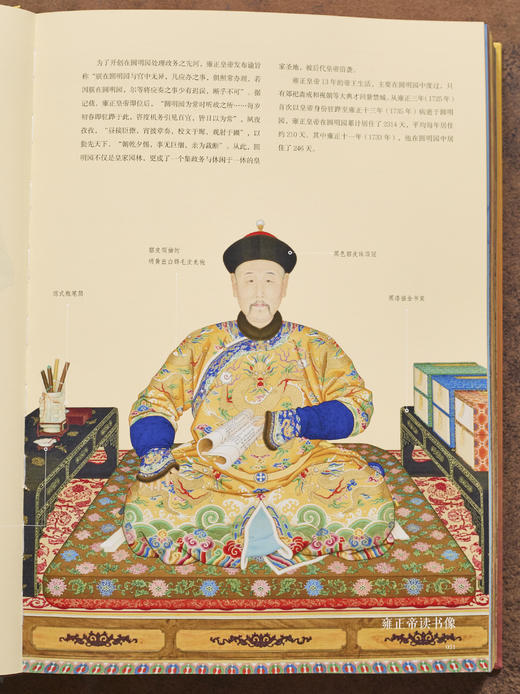 为了开创在圆明园处理政务之先河，雍正皇帝发布谕旨
称“朕在圆明园与宫中无异，凡应办之事，俱照常办理，若
因朕在圆明园，尔等将应奏之事少有迟误，断乎不可”。据
记载，雍正皇帝即位后，“圆明园为常时听政之所……每岁
初春即驻跸于此，咨度机务引见百官，皆日以为常”，夙夜
孜孜，“昼接臣僚，宵披章奏，校文于墀，观射于圃”，以
勤先天下，“朝乾夕惕，事无巨细，亲为裁断”。从此，圆
明园不仅是皇家园林，更成了一个集政务与休闲于一体的皇
家圣地，被后代皇帝沿袭。
雍正皇帝 13 年的帝王生活，主要在圆明园中度过，只
有郊祀斋戒和视朝等大典才回紫禁城。从雍正三年（1725 年）
首次以皇帝身份驻跸至雍正十三年（1735 年）病逝于圆明
园，雍正皇帝在圆明园累计居住了 2314 天，平均每年居住
约 210 天。其中雍正十一年（1733 年），他在圆明园中居
住了 246 天。
貂皮领袖衬
明黄出白锋毛皮龙袍
黑色貂皮珠顶冠
黑漆描金书案
雍正帝读书像
051